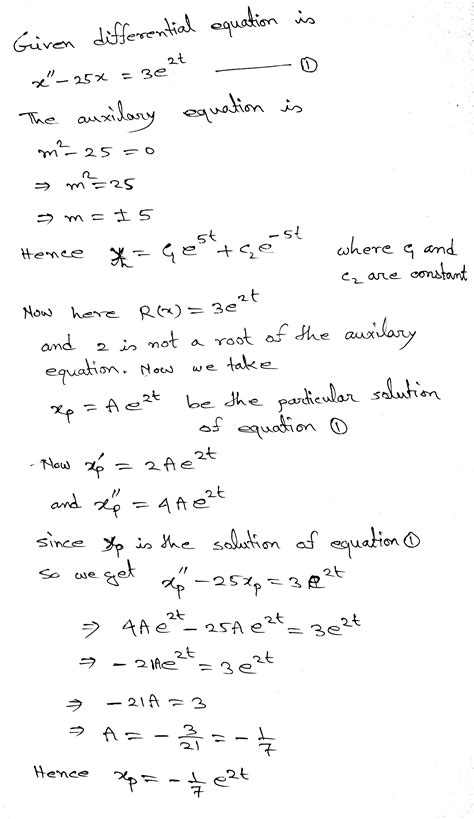 Given differential equation is
x'' - 25x = 3e^{2t} —— ①
The auxilary equation is
m^2 - 25 = 0
⇒ m^2 = 25
⇒ m = ± 5
Hence x_h = c_1 e^{5t} + c_2 e^{-5t} where c_1 and
c_2 are constant
Now here R(x) = 3e^{2t}
and 2 is not a root of the auxilary
equation. Now we take
x_p = A e^{2t} be the particular solution
of equation ①
- Now x_p' = 2A e^{2t}
and x_p'' = 4A e^{2t}
since x_p is the solution of equation ①
so we get x_p'' - 25x_p = 3e^{2t}
⇒ 4A e^{2t} - 25A e^{2t} = 3e^{2t}
⇒ - 21A e^{2t} = 3e^{2t}
⇒ - 21A = 3
⇒ A = - 3/21 = - 1/7
Hence x_p = - 1/7 e^{2t}